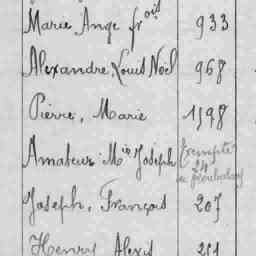 Marie Ange frois 933
Alexandre Louis Noël 968
Pierre, Marie 1598
Amateur Mie Joseph Exempté
24
Joseph, François 207
Henry Alexis 251